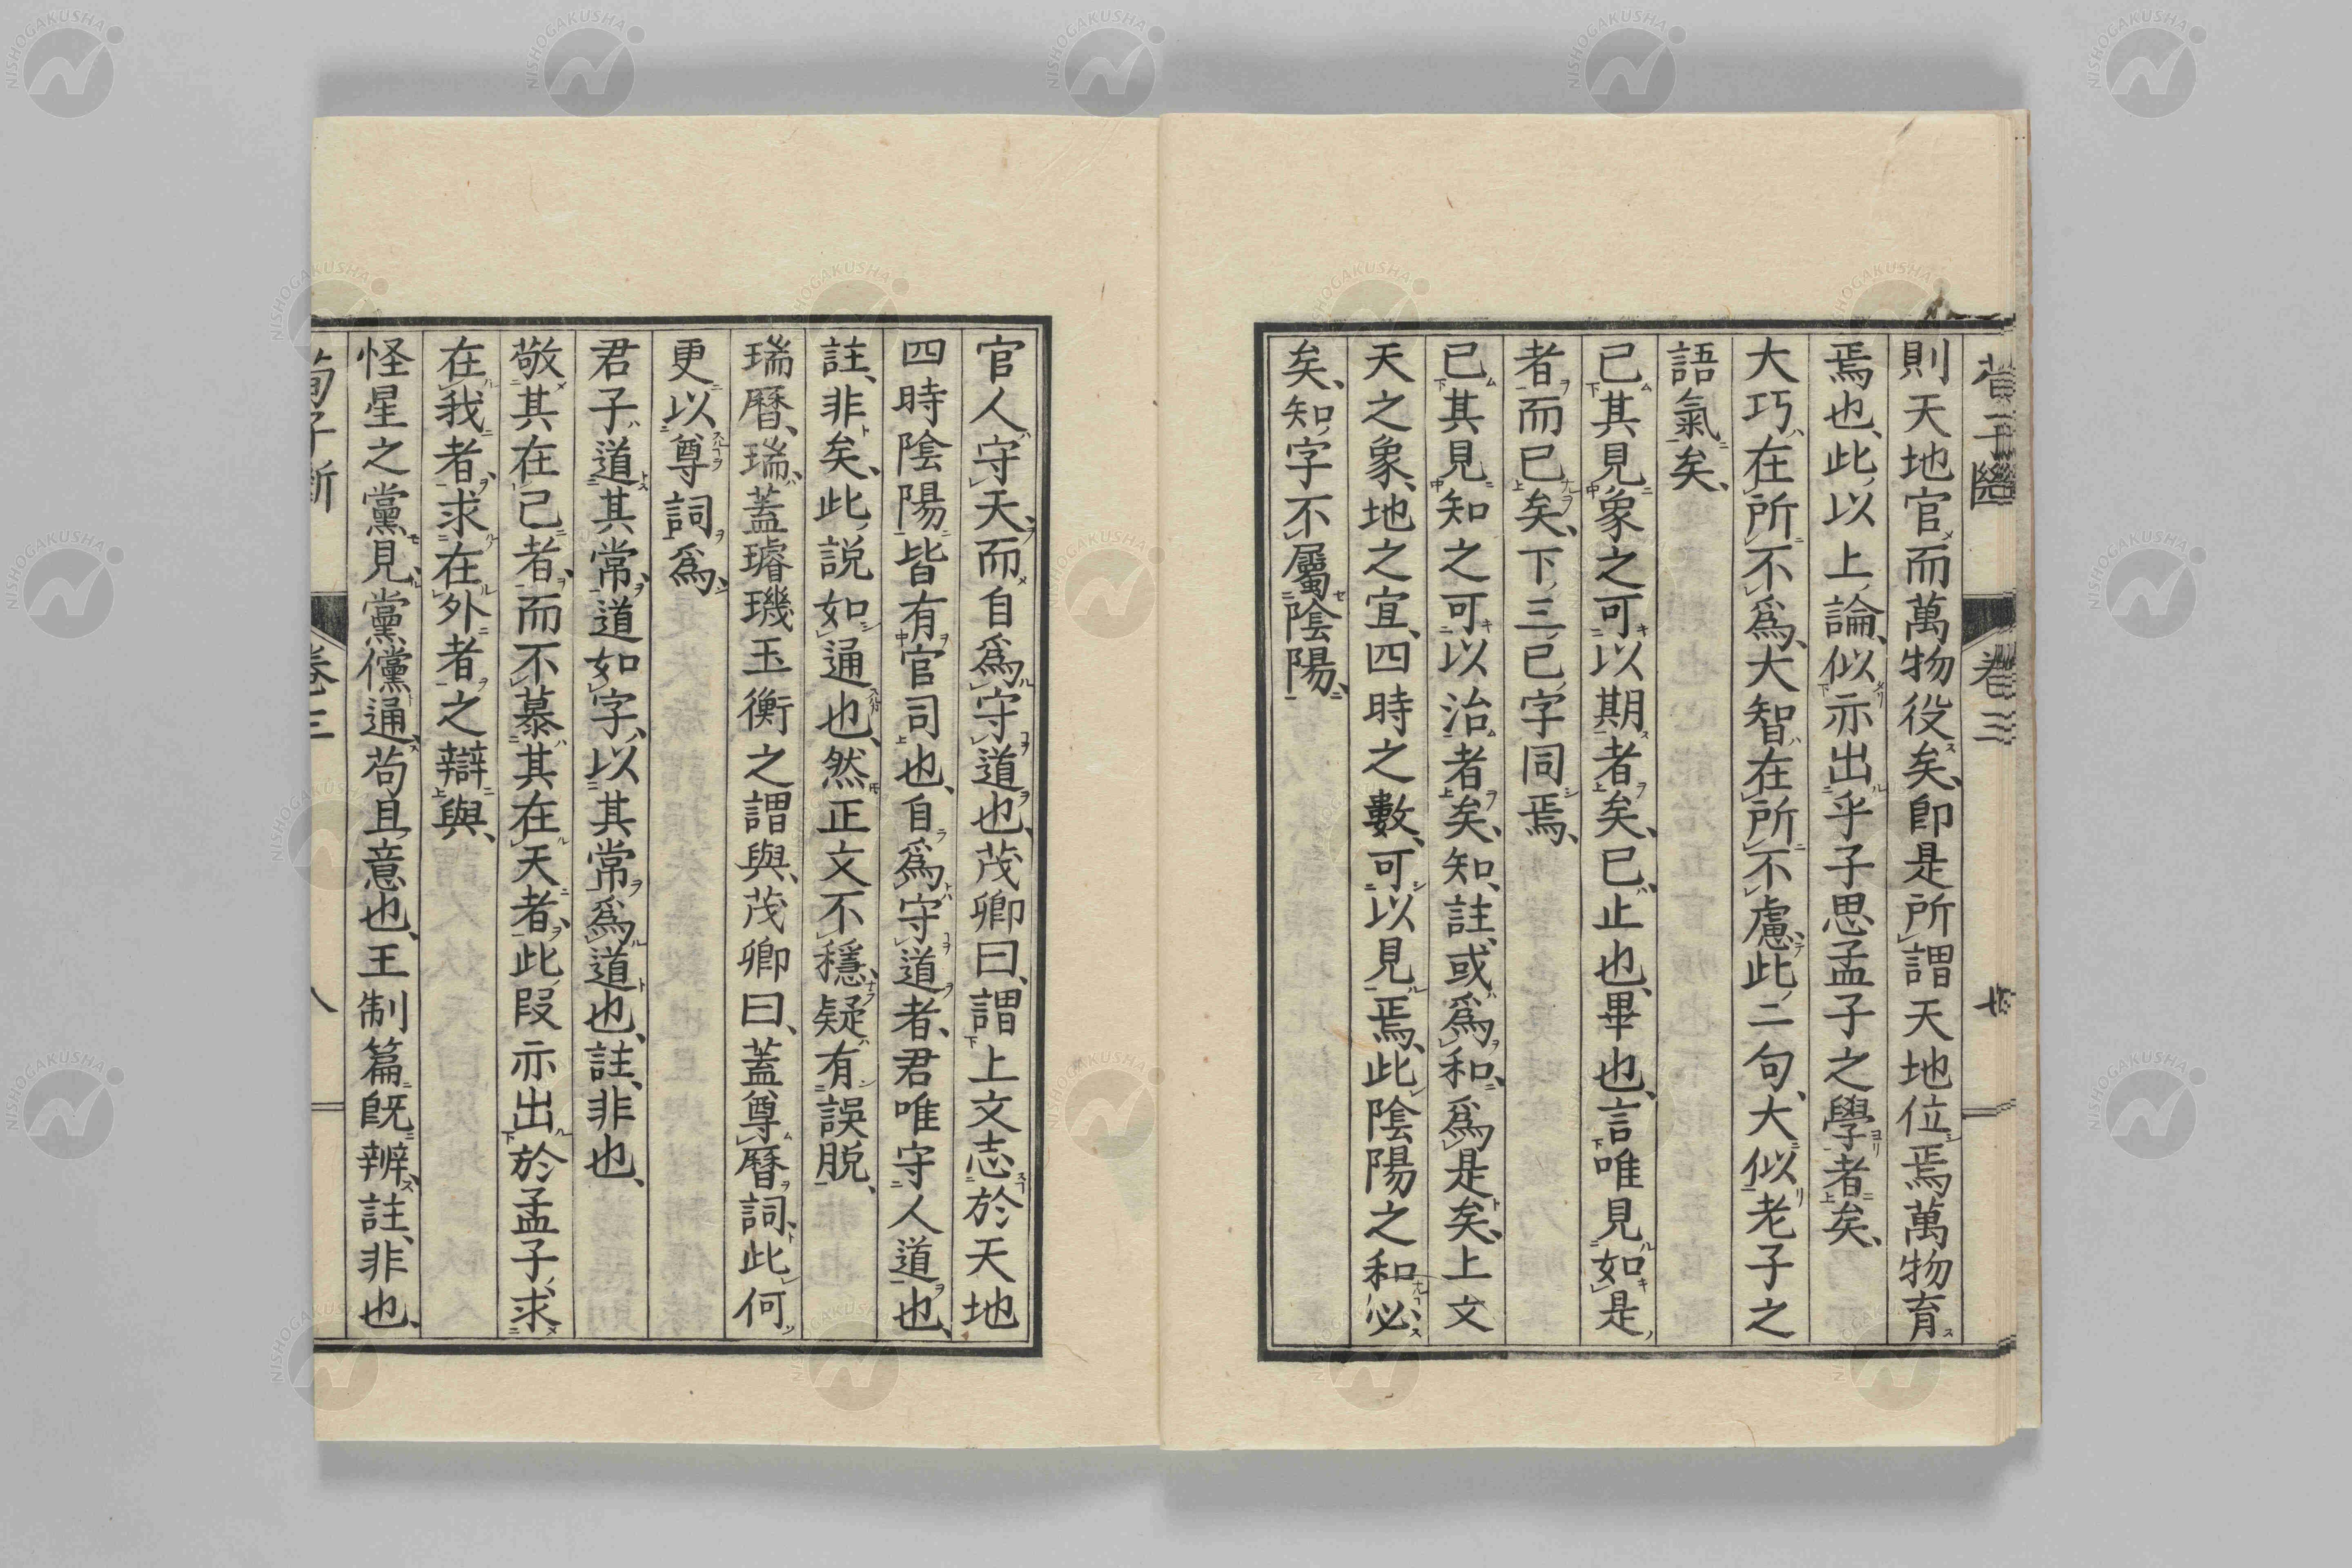 則天地官而萬物役矣、卽是所謂天地位焉萬物育
焉也、此以上論、似亦出乎子思孟子之學者矣、
大巧在所不爲、大智在所不慮、此二句、大似老子之
語氣矣、
已其見象之可以期者矣、已、止也、畢也、言唯見如是
者而已矣、下三已字同焉、
已其見知之可以治者矣、知、註、或爲和、爲是矣、上文
天之象、地之宜、四時之數、可以見焉、此陰陽之和、必
矣、知字不屬陰陽、
卷三
官人守天、而自爲守道也、茂卿曰、謂上文志於天地
四時陰陽皆有官司也、自爲守道者、君唯守人道也、
註、非矣、此說如通也、然正文不穩、疑有誤脫、
瑞曆、瑞、蓋璿璣玉衡之謂與、茂卿曰、蓋尊曆詞、此何
更以尊詞爲、
君子道其常、道如字、以其常爲道也、註、非也、
敬其在己者、而不慕其在天者、此段亦出於孟子、求
在我者、求在外者之辯與、
怪星之黨見、黨儻通、苟且意也、王制篇旣辨、註、非也、
荀子斷
卷三
八
NISHOGAKUSHA